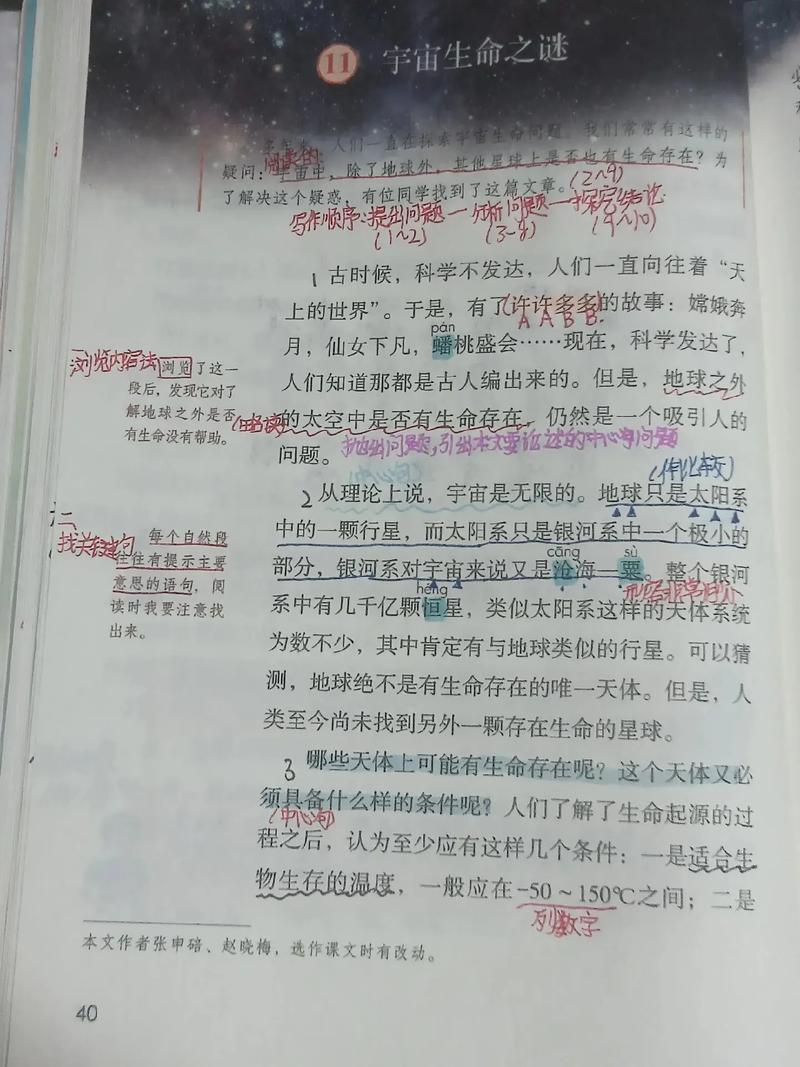 11 宇宙生命之谜
多年来，人们一直在探索宇宙生命问题。我们常常有这样的
阅读的:
疑问：宇宙中，除了地球外，其他星球上是否也有生命存在？为
了解决这个疑惑，有位同学找到了这篇文章。
(2~9)
写作顺序:提出问题—分析问题—探究结论
(1~2) (3~8) (9~10)
1 古时候，科学不发达，人们一直向往着“天
上的世界”。于是，有了(许许多多)的故事：嫦娥奔
A A B B.
pán
月，仙女下凡，蟠桃盛会……现在，科学发达了，
人们知道那都是古人编出来的。但是，地球之外
的太空中是否有生命存在，仍然是一个吸引人的
问题。
抛出问题,引出本文要论述的中心问题
浏览内容法
浏览了这一
段后，发现它对了
解地球之外是否
有生命没有帮助。
(中心句)
(作比较)
2 从理论上说，宇宙是无限的。地球只是太阳系
中的一颗行星，而太阳系只是银河系中一个极小的
cāng sù
部分，银河系对宇宙来说又是沧海一粟。整个银河
形容非常
héng
系中有几千亿颗恒星，类似太阳系这样的天体系统
为数不少，其中肯定有与地球类似的行星。可以猜
测，地球绝不是有生命存在的唯一天体。但是，人
类至今尚未找到另外一颗存在生命的星球。
二、
找关键句
每个自然段
往往有提示主要
意思的语句，阅
读时我要注意找
出来。
3 哪些天体上可能有生命存在呢？这个天体又必
须具备什么样的条件呢？人们了解了生命起源的过
(中心句)
程之后，认为至少应有这样几个条件：一是适合生
物生存的温度，一般应在-50～150℃之间；二是
列数字
本文作者张申碚、赵晓梅，选作课文时有改动。
40